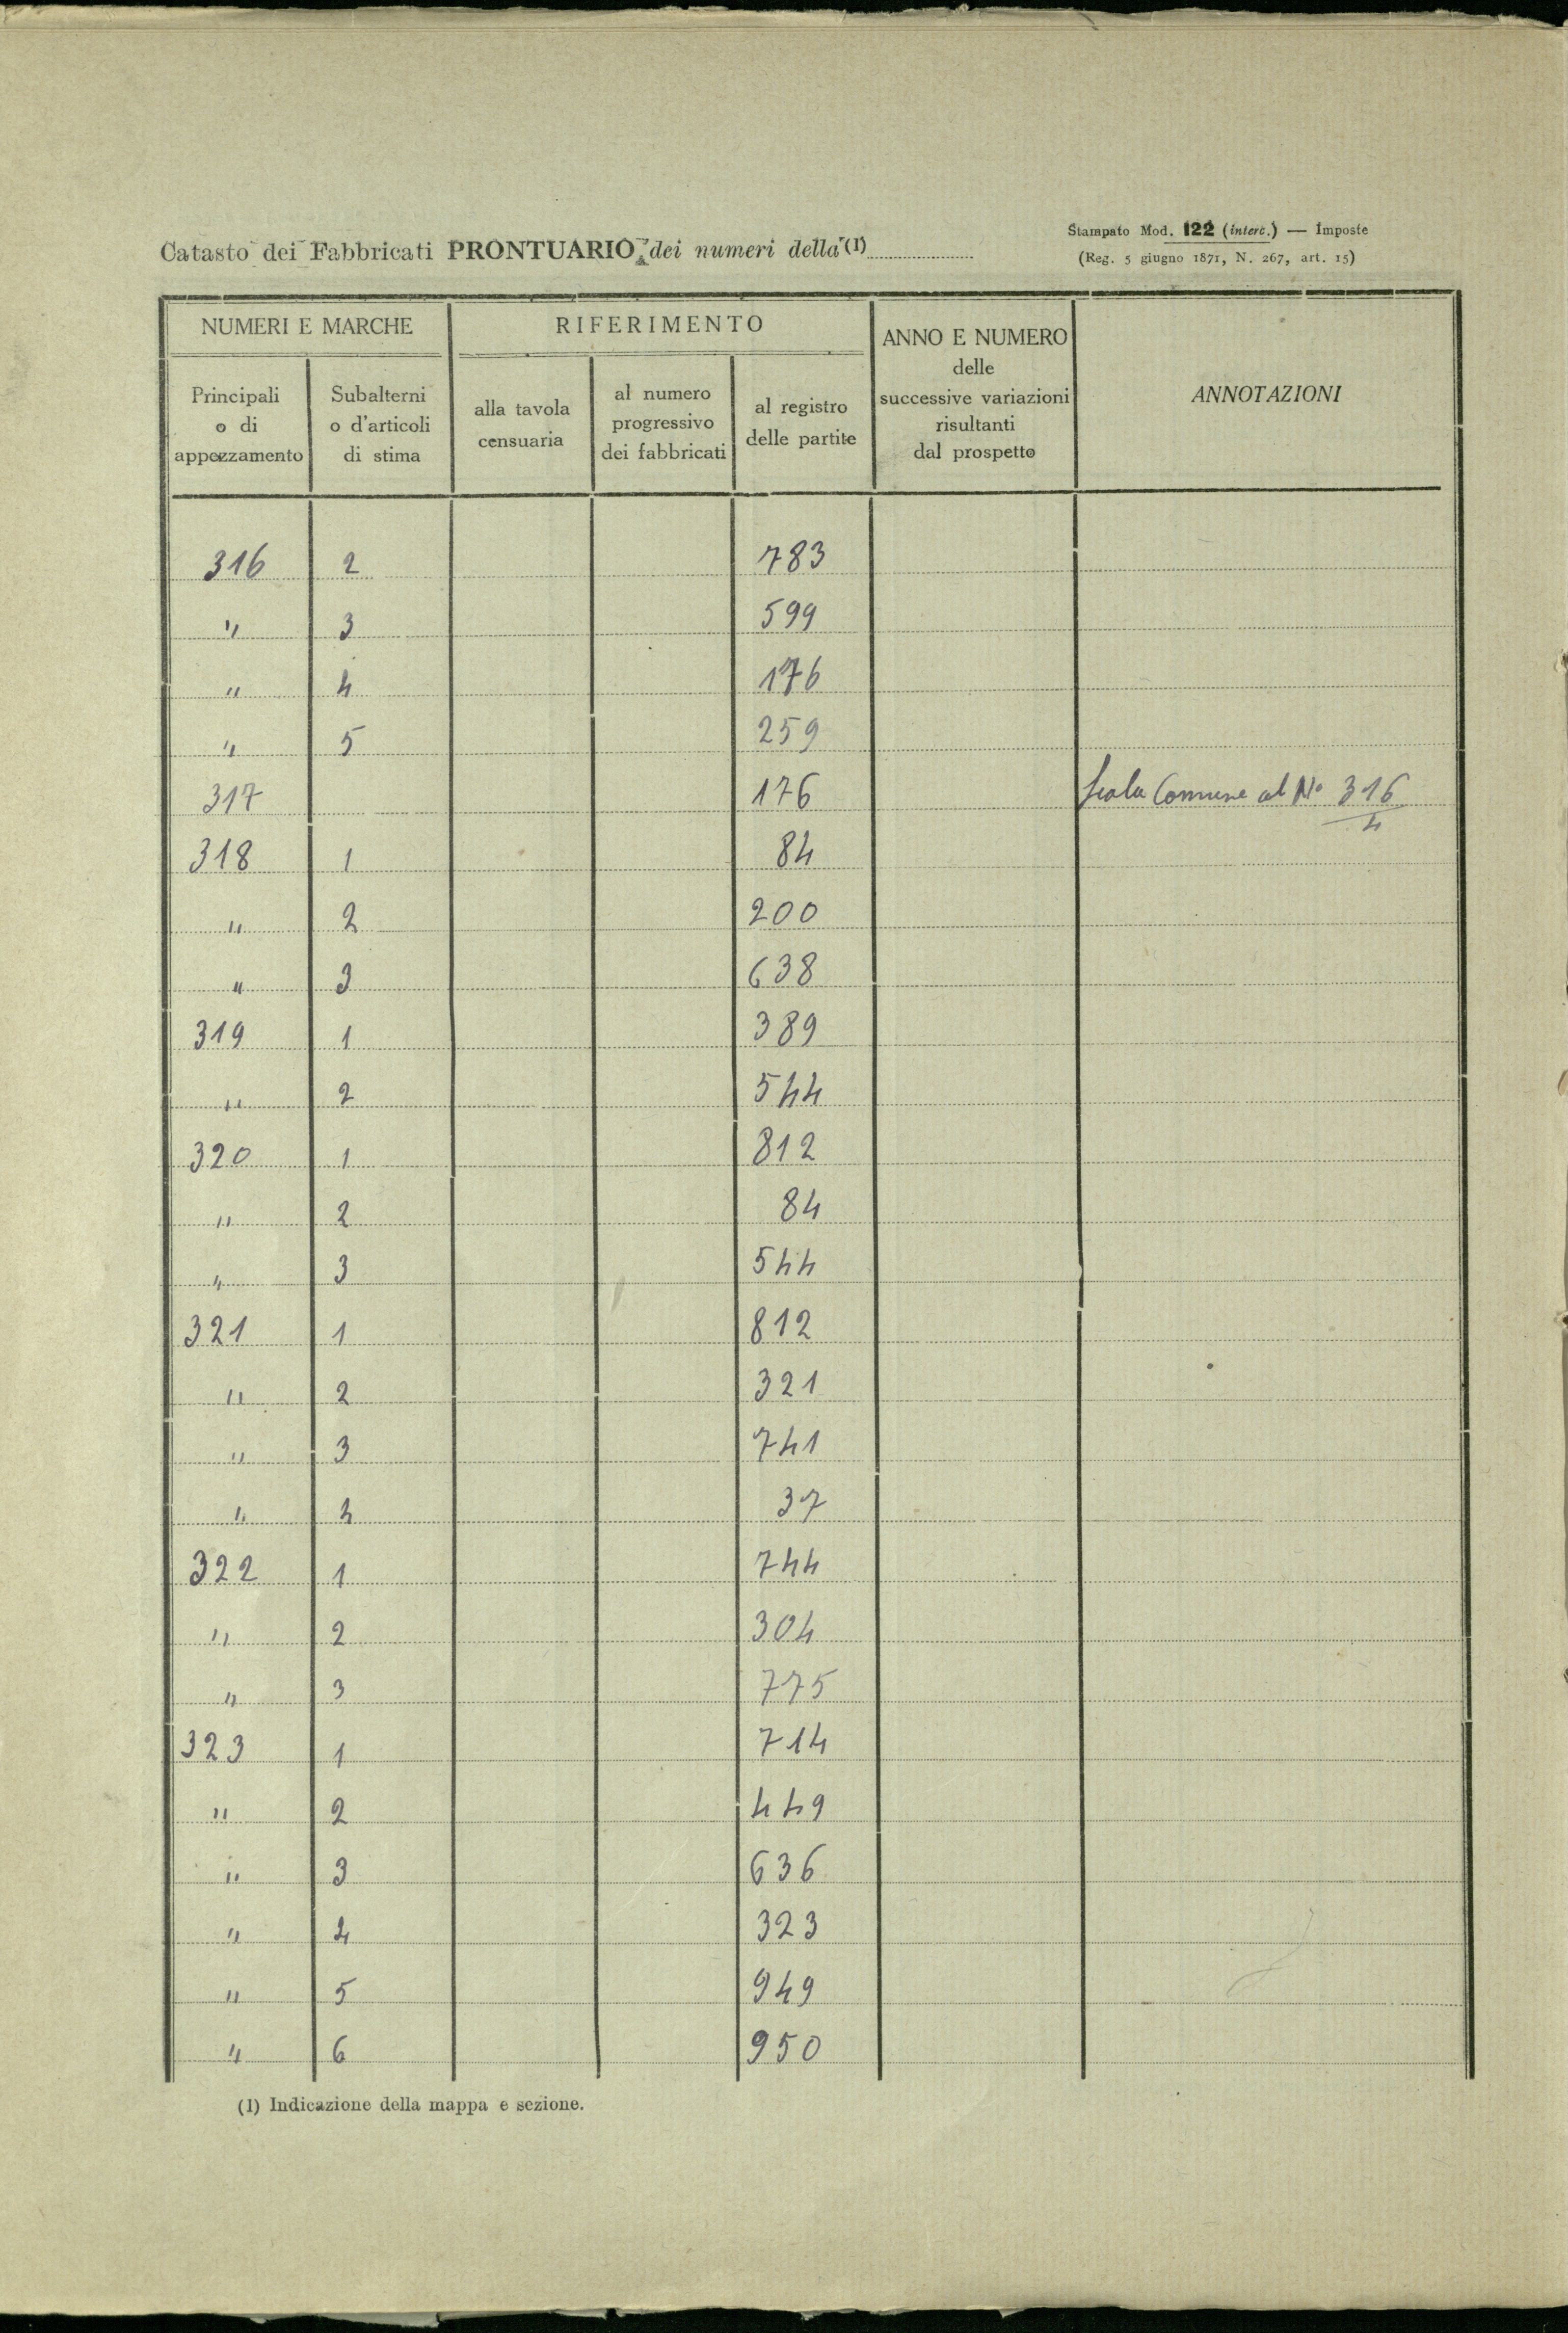 Catasto dei Fabbricati PRONTUARIO dei numeri della (1)
Stampato Mod. 122 (interc.) — Imposte
(Reg. 5 giugno 1871, N. 267, art. 15)
NUMERI E MARCHE
Principali
o di
appezzamento
Subalterni
o d'articoli
di stima
RIFERIMENTO
alla tavola
censuaria
al numero
progressivo
dei fabbricati
al registro
delle partite
ANNO E NUMERO
delle
successive variazioni
risultanti
dal prospetto
ANNOTAZIONI
316 2 783
" 3 599
" 4 176
" 5 259
317 176 Scala Comune al No 316/4
318 1 84
" 2 200
" 3 638
319 1 389
" 2 544
320 1 812
" 2 84
" 3 544
321 1 812
" 2 321
" 3 741
" 4 37
322 1 744
" 2 304
" 3 775
323 1 714
" 2 449
" 3 636
" 4 323
" 5 949
" 6 950
(1) Indicazione della mappa e sezione.